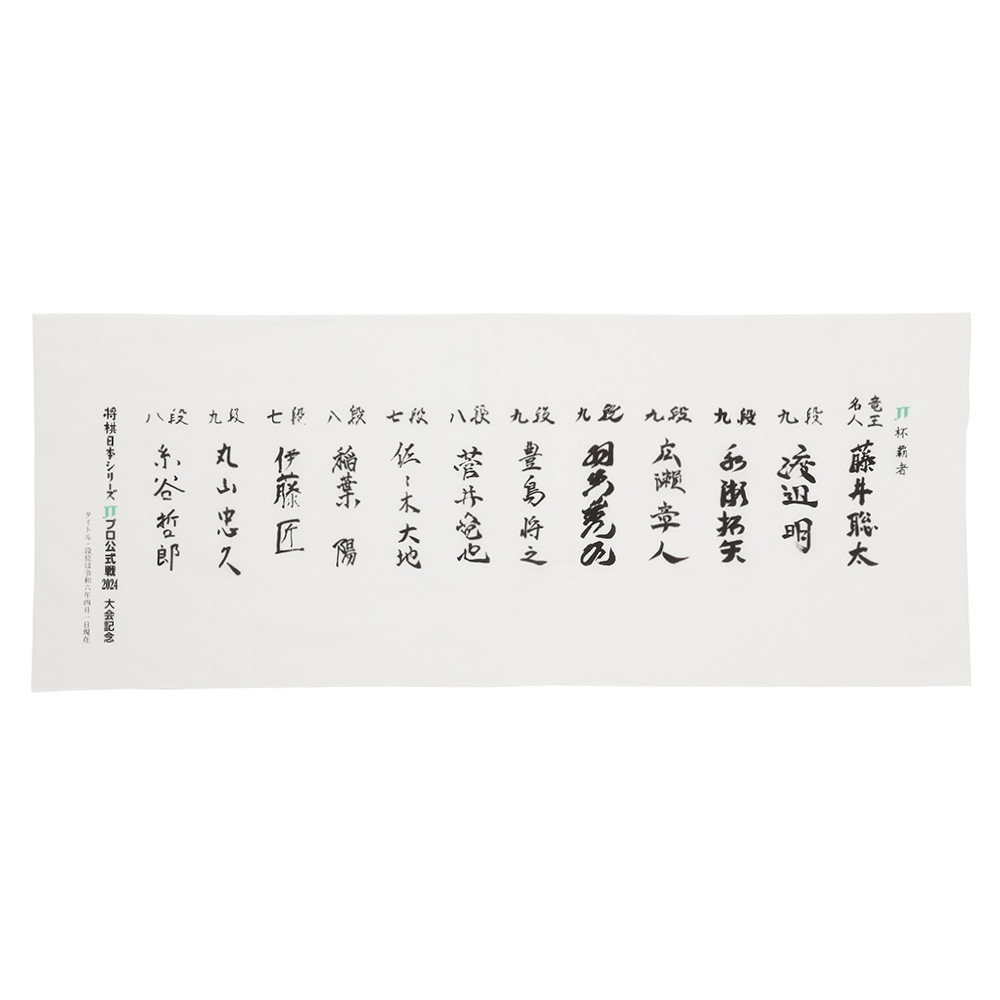 JT杯覇者
竜王
名人
藤井聡太
九段
渡辺明
九段
永瀬拓矢
九段
広瀬章人
九段
羽生善治
九段
豊島将之
八段
菅井竜也
七段
佐々木大地
八段
稲葉陽
七段
伊藤匠
九段
丸山忠久
八段
糸谷哲郎
将棋日本シリーズ JTプロ公式戦2024 大会記念
タイトル・段位は令和六年四月一日現在